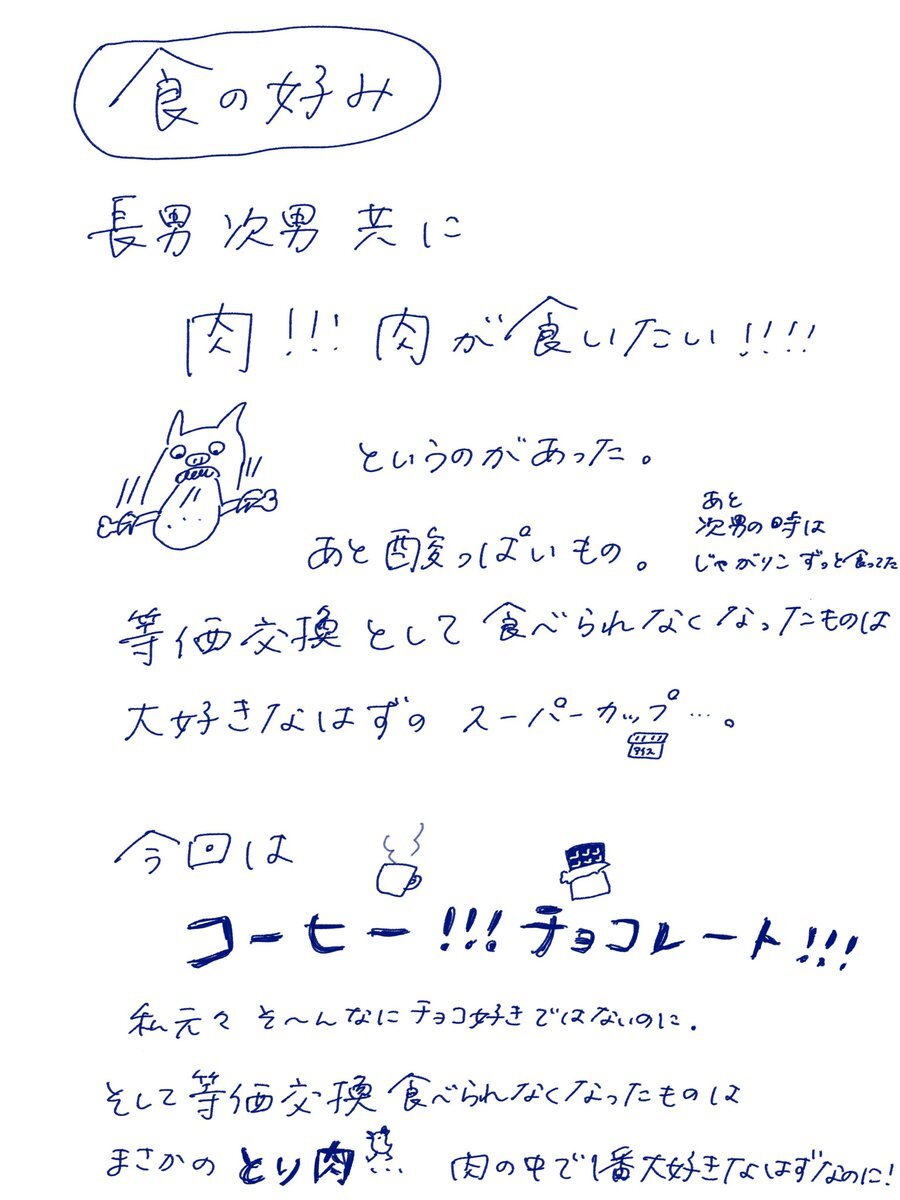 食の好み
長男 次男 共に
肉!!! 肉が食いたい!!!!
というのがあった。
あと酸っぱいもの。
あと
次男の時は
じゃがりこ ずっと食ってた
等価交換として食べられなくなったものは
大好きなはずの スーパーカップ…。
アイス
今回は
コーヒー!!! チョコレート!!!
私元々 そ〜んなにチョコ好きではないのに.
そして等価交換 食べられなくなったものは
まさかの とり肉 肉の中で1番大好きなはずなのに!